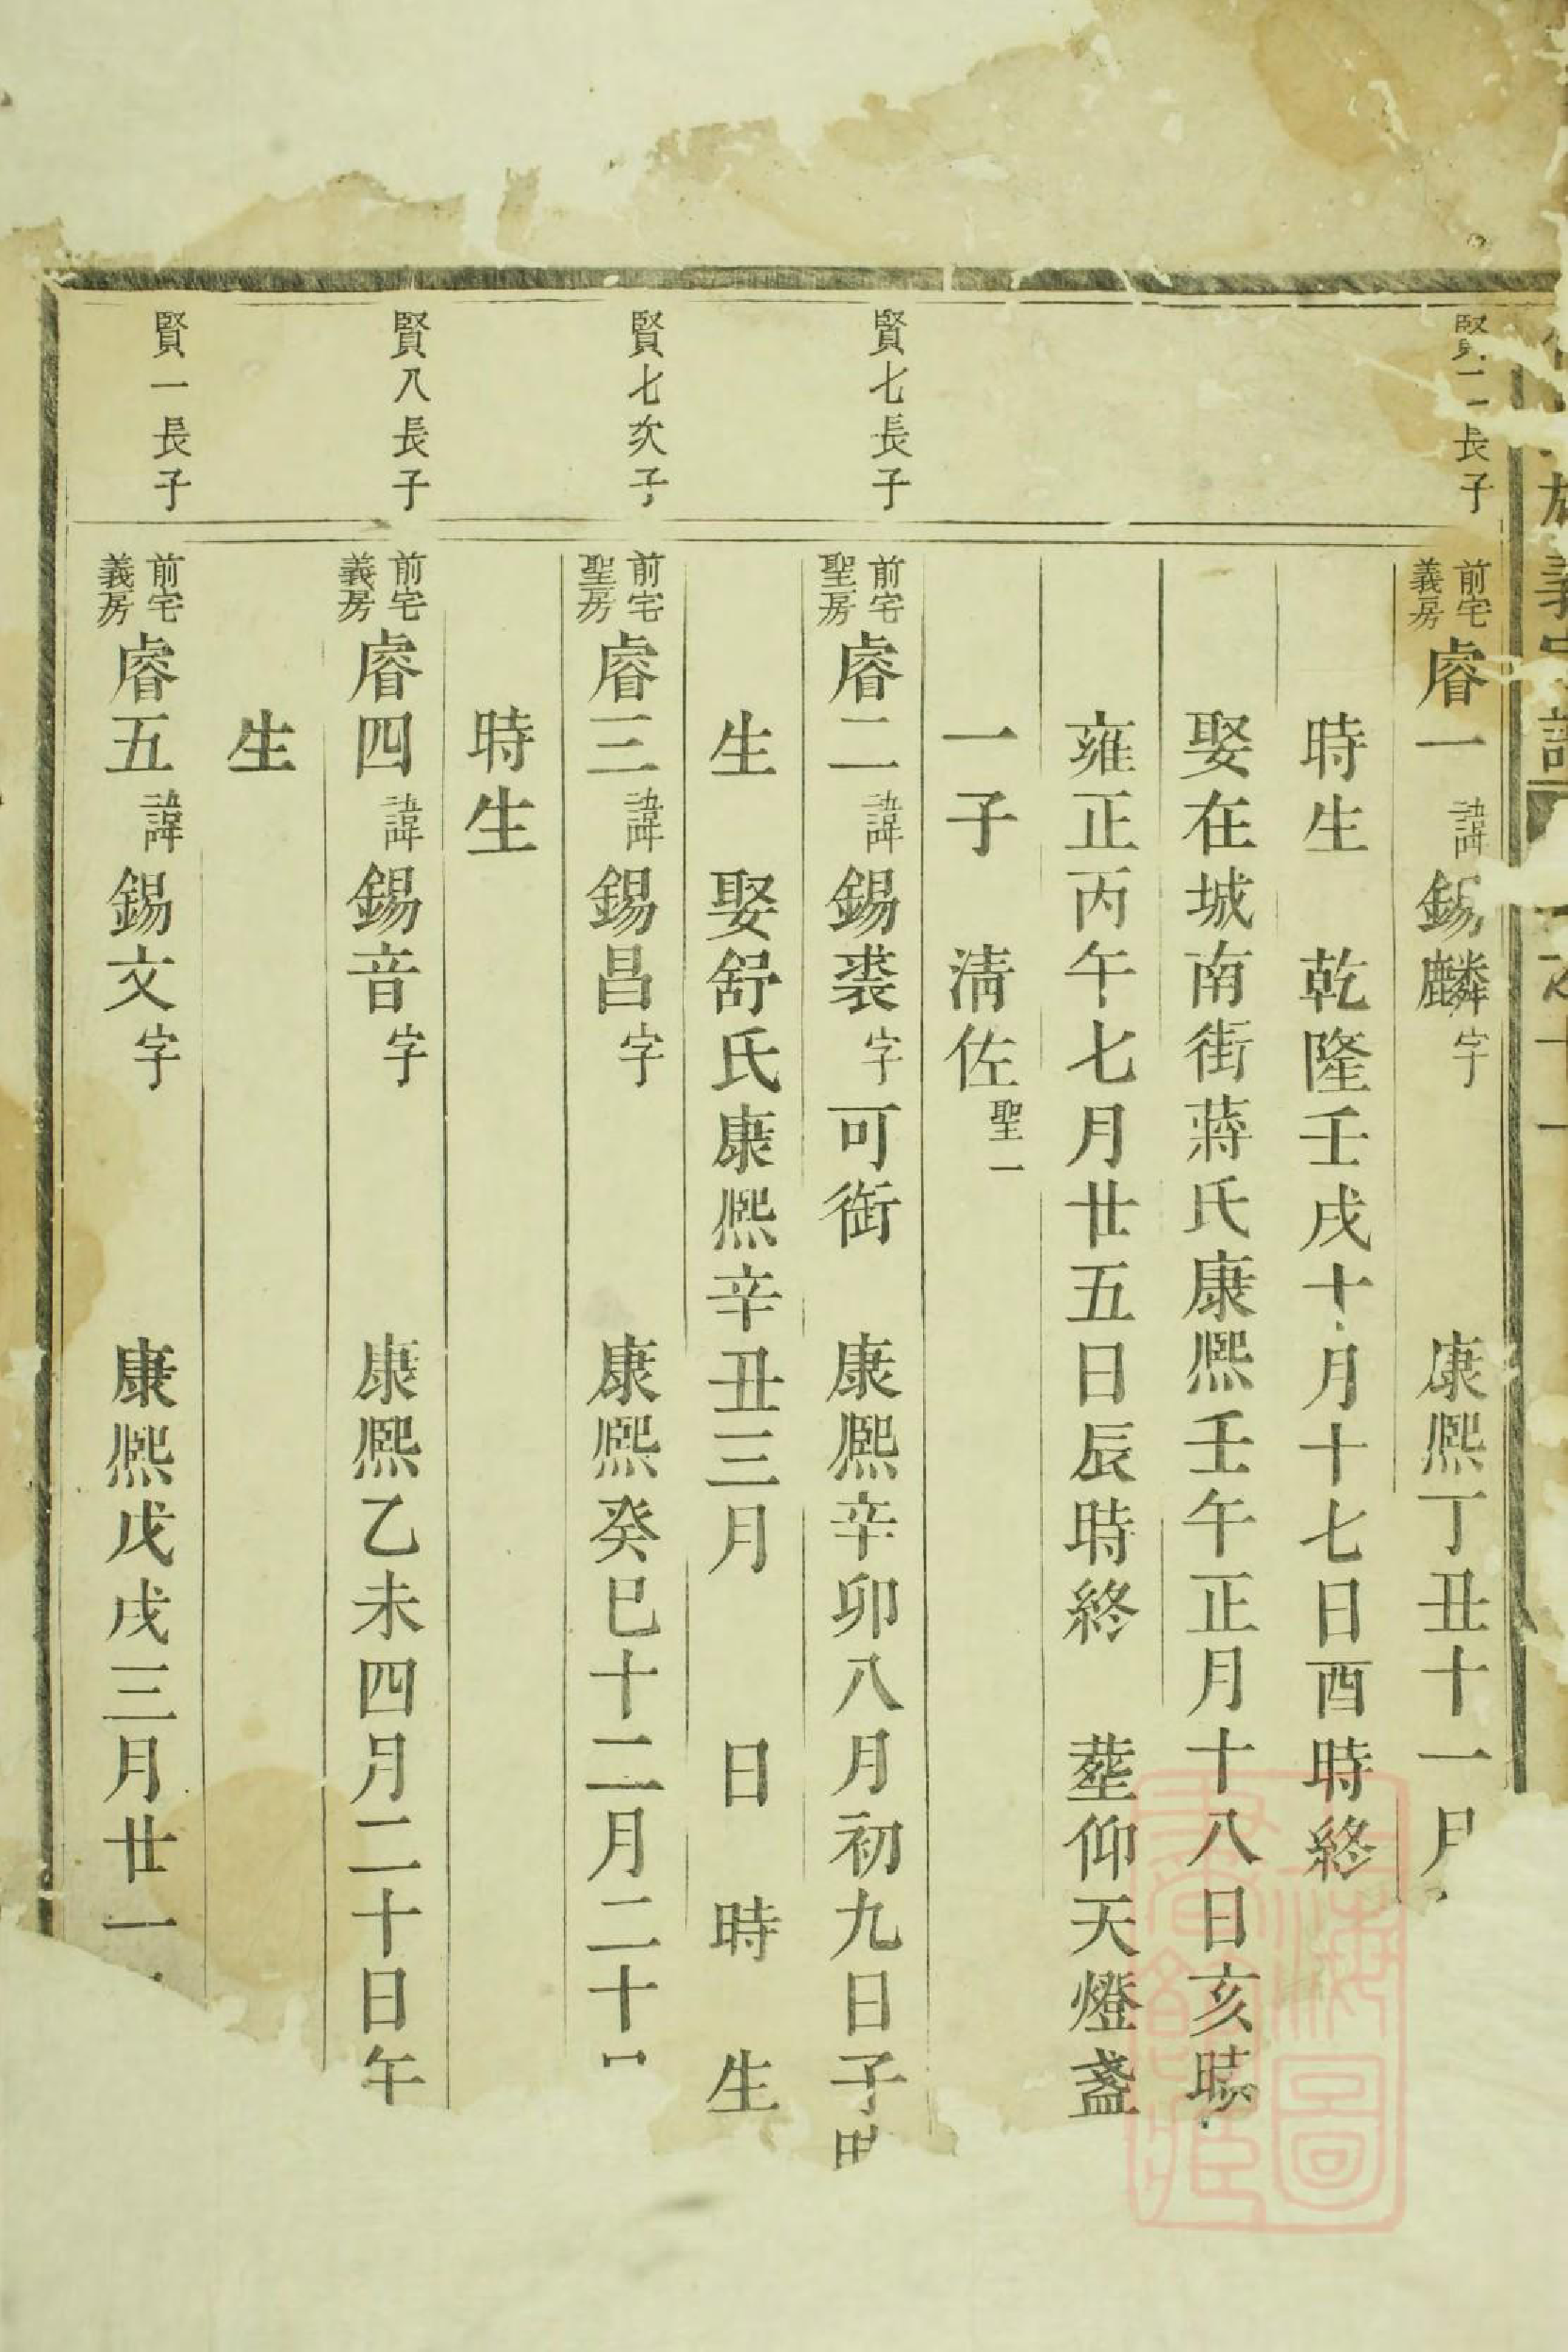 賢二長子
前宅義房睿一諱錫麟字 康熙丁丑十一月
時生 乾隆壬戌十月十七日酉時終
娶在城南街蔣氏康熙壬午正月十八日亥時
雍正丙午七月廿五日辰時終 塟仰天燈盞
一子 淸佐聖一
賢七長子
前宅聖房睿二諱錫裘字可衡 康熙辛卯八月初九日子時
生 娶舒氏康熙辛丑三月 日 時生
賢七次子
前宅聖房睿三諱錫昌字 康熙癸巳十二月二十
時生
賢八長子
前宅義房睿四諱錫音字 康熙乙未四月二十日午
生
賢一長子
前宅義房睿五諱錫文字 康熙戊戌三月廿一
上海圖書館藏